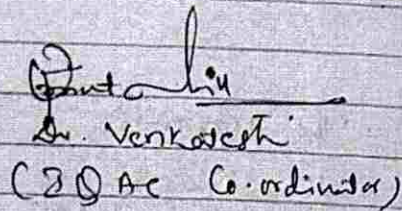 Dr. Venkatesh
(IQAC Co.ordinator)